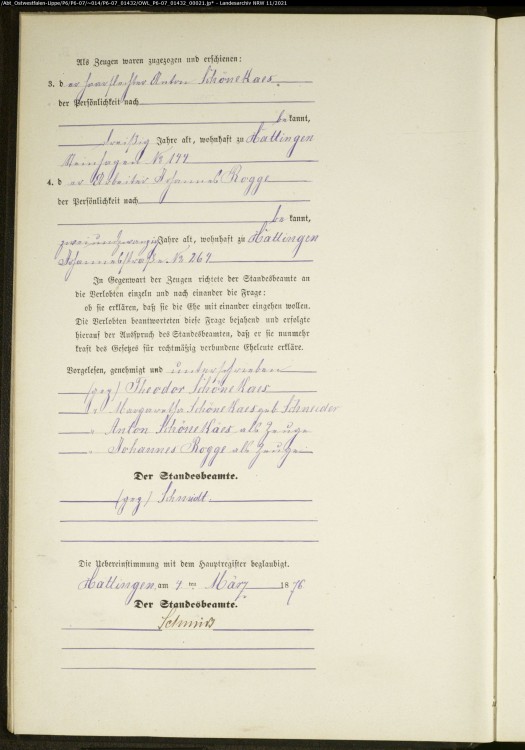 /Abt_Ostwestfalen-Lippe/P6/P6-07/~014/P6-07_01432/OWL_P6-07_01432_00021.jp* - Landesarchiv NRW 11/2021
Als Zeugen waren zugezogen und erschienen:
3. d er Anton Schönekaes
der Persönlichkeit nach
be kannt,
dreißig Jahre alt, wohnhaft zu Hattingen
No 199
4. d er Arbeiter Johannes Rogge
der Persönlichkeit nach
be kannt,
zweiundzwanzig Jahre alt, wohnhaft zu Hattingen
Johannesstraße No 269
In Gegenwart der Zeugen richtete der Standesbeamte an
die Verlobten einzeln und nach einander die Frage:
ob sie erklären, daß sie die Ehe mit einander eingehen wollen.
Die Verlobten beantworteten diese Frage bejahend und erfolgte
hierauf der Ausspruch des Standesbeamten, daß er sie nunmehr
kraft des Gesetzes für rechtmäßig verbundene Eheleute erkläre.
Vorgelesen, genehmigt und unterschrieben
(gez) Theodor Schönekaes
" Margaretha Schönekaes geb. Schneider
" Anton Schönekäes als Zeuge
" Johannes Rogge als Zeuge
Der Standesbeamte.
(gez) Schmidt
Die Uebereinstimmung mit dem Hauptregister beglaubigt.
Hattingen, am 4 ten März 1876
Der Standesbeamte.